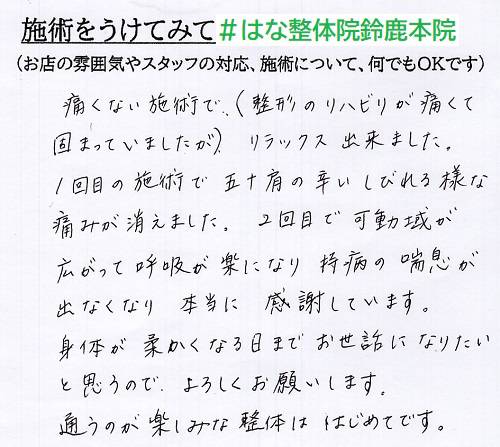 施術をうけてみて#はな整体院鈴鹿本院
(お店の雰囲気やスタッフの対応、施術について、何でもOKです)
痛くない施術で、(整形のリハビリが痛くて
固まっていましたが) リラックス出来ました。
1回目の施術で五十肩の辛いしびれる様な
痛みが消えました。2回目で可動域が
広がって呼吸が楽になり持病の喘息が
出なくなり本当に感謝しています。
身体が柔かくなる日までお世話になりたい
と思うので、よろしくお願いします。
通うのが楽しみな整体ははじめてです。